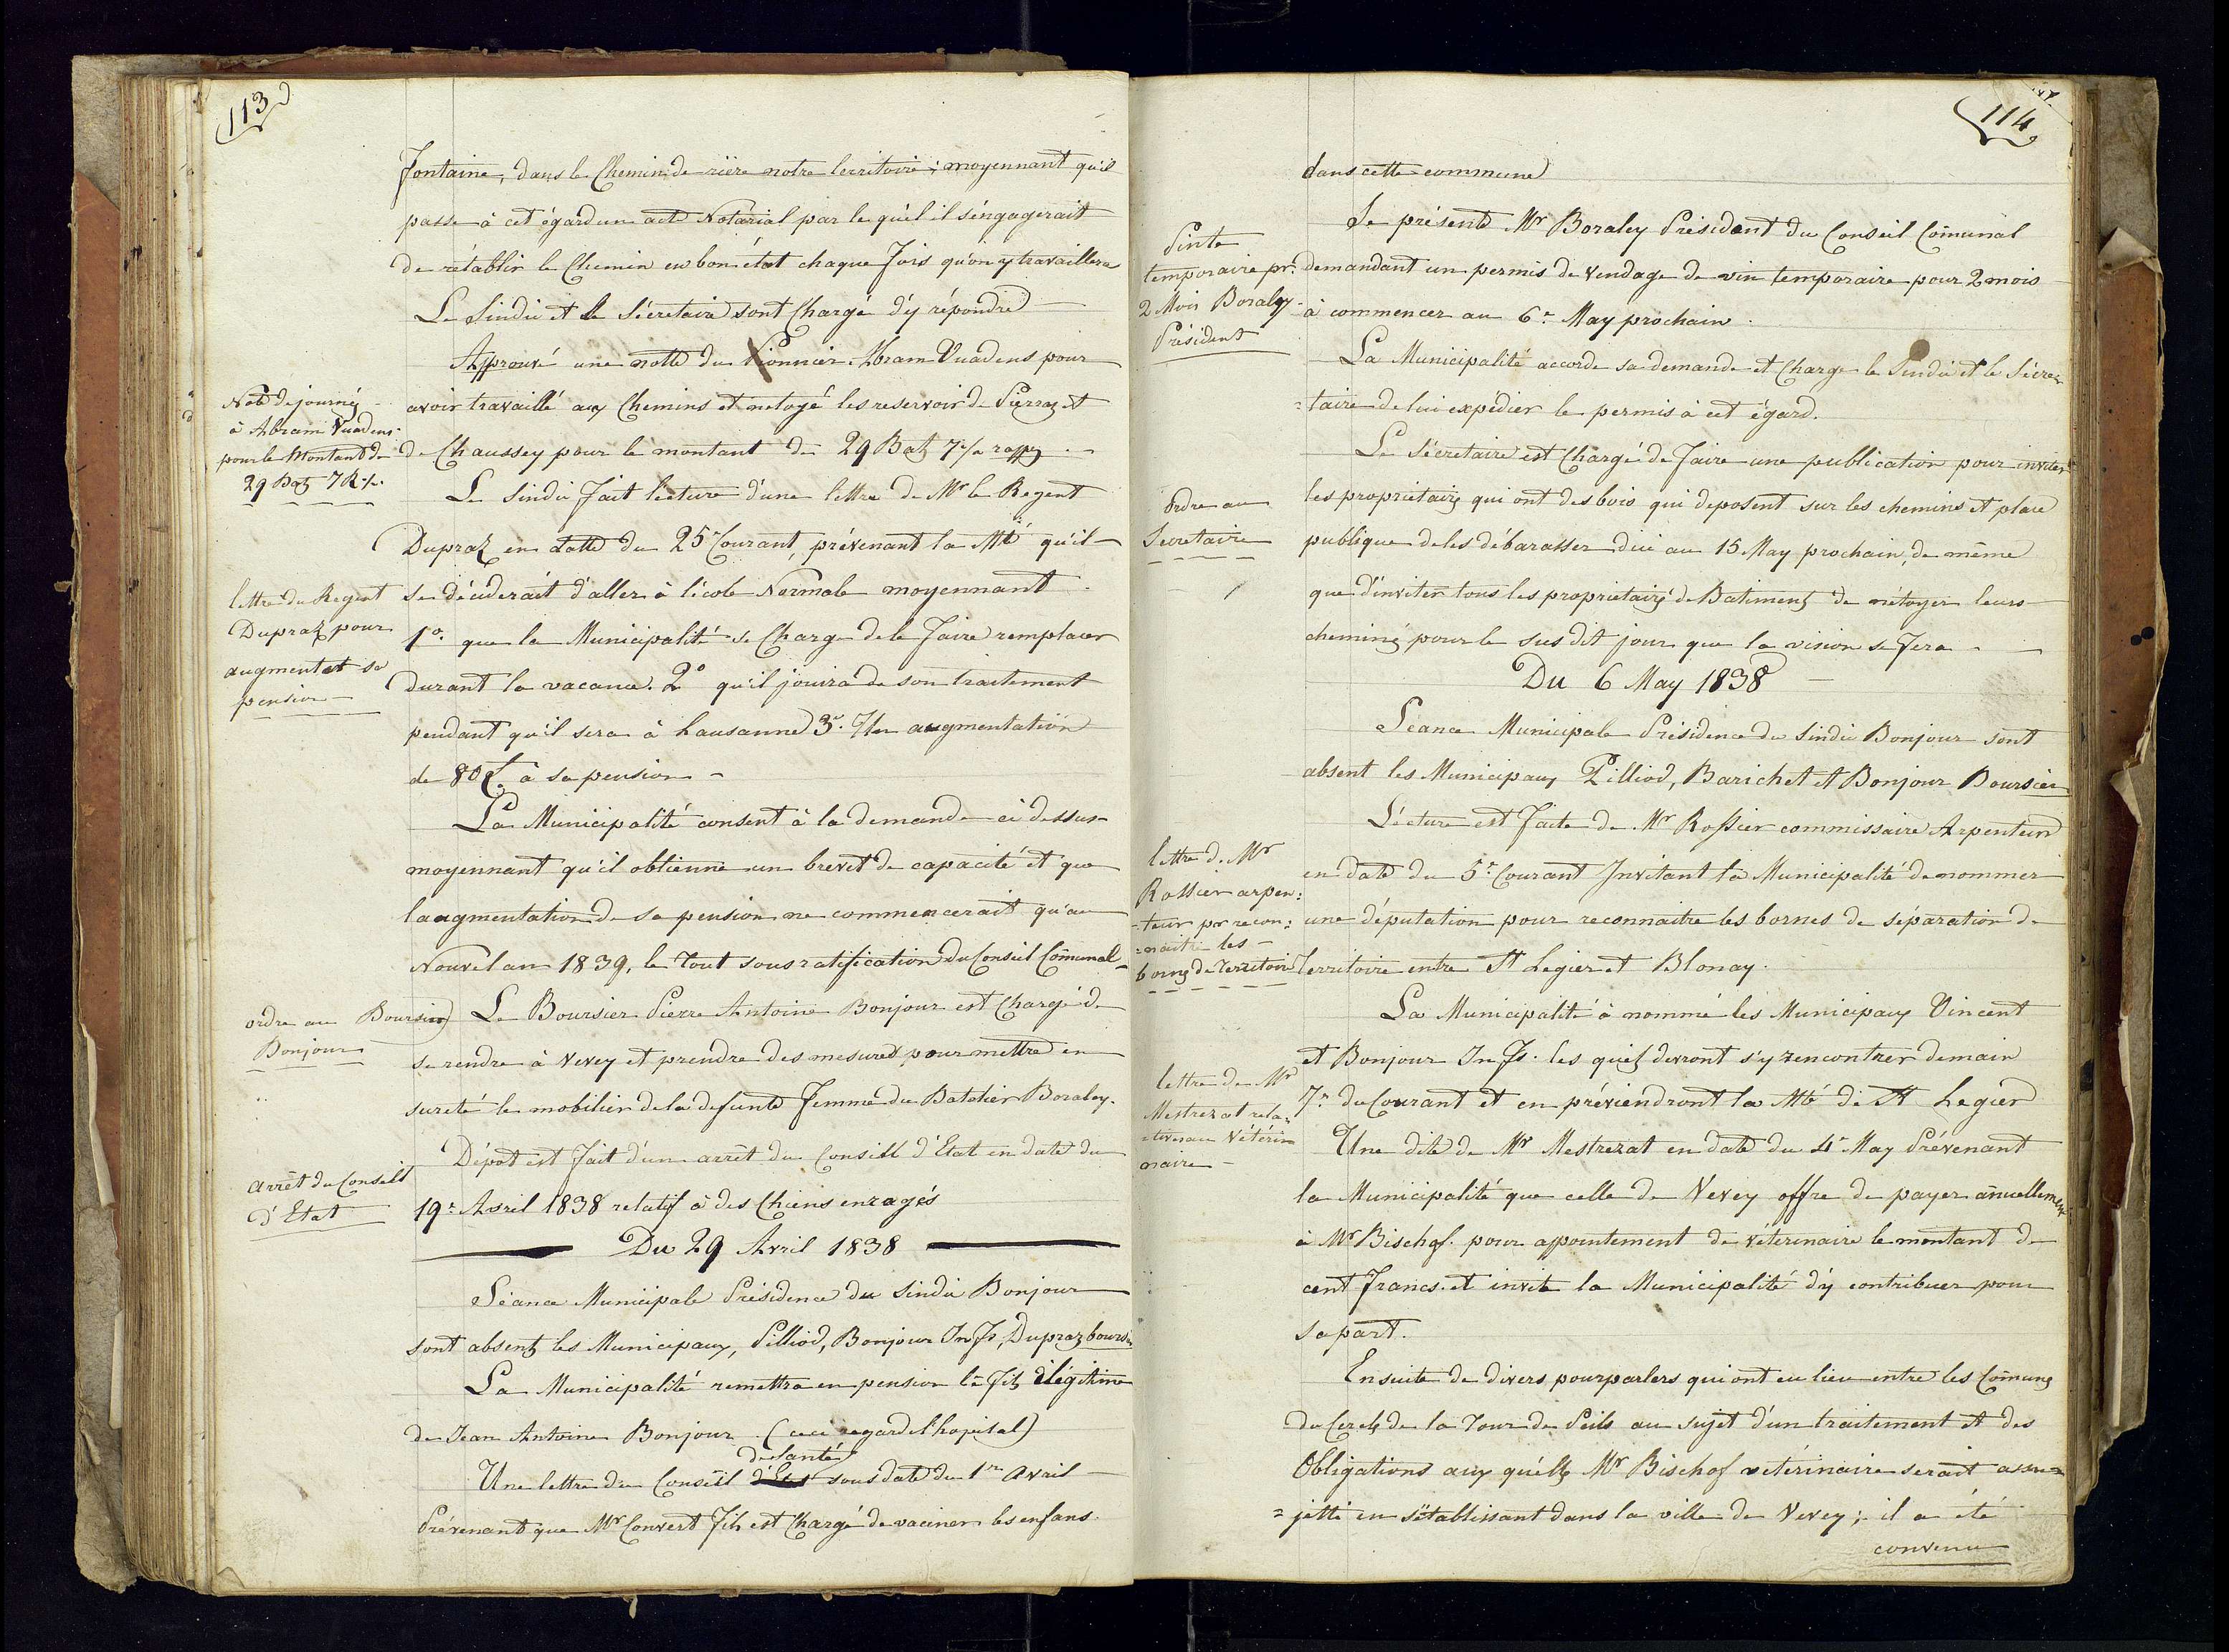 113
fontaine, dans le Chemin de rière notre territoire; moyennant qu'il
passe à cet égard un acte Notarial par le quel il s'éngagerait
de rétablir le Chemin en bon état chaque fois qu'on y travaillera
Le Sindic et le Sécretaire sont Chargé d'y répondre
Approuvé une notte du Pionnier Abram Vuadens pour
Note de journée
à Abram Vuadens
pour le Montant de
29 Batz 7 R ½.
avoir travaillé aux Chemins et netoyé les reservoir de Pierraz et
de Chaussey pour le montant de 29 Batz 7 ½ rappz
Le Sindic fait lécture d'une lettre de Mr le Regent
Dupraz en datte du 25e Courant, prévenant la Mté qu'il
lettre du Regent
Dupraz pour
augmentat sa
pension
se déciderait d'aller à l'école Normale moyennant
1o. que la Municipalité se Charge de le faire remplacer
durant la vacance. 2o qu'il jouira de son traitement
pendant qu'il sera à Lausanne 3o. Une augmentation
de 80 £ à sa pension
La Municipalité consent à la demande ci dessus
moyennant qu'il obtienne un brevet de capacité et que
laugmentation de sa pension ne commencerait qu'au
Nouvel an 1839, le tout sous ratification du Conseil Comunal
ordre au Boursier
Bonjour
Le Boursier Pierre Antoine Bonjour est Chargé de
se rendre à Vevey et prendre des mesures pour mettre en
sureté le mobilier de la defunte femme du Batelier Boraley.
arrêt du Conseil
d'Etat
Dépot est fait d'un arrêt du Conseil d'Etat en date du
19e Avril 1838 relatif à des Chiens enragés
Du 29 Avril 1838
Séance Municipale Présidence du Sindic Bonjour
sont absentz les Municipaux, Pilliod, Bonjour Jn Fs, Dupraz boursier
La Municipalité remettra en pension le fils ilégitime
de Jean Antoine Bonjour (ceci regarde l'hopital)
de Santé
Une lettre du Conseil d'Etat sous date du 1er Avril
Prévenant que Mr Convert fils est Chargé de vaciner les enfans
114
dans cette commune
Pinte
temporaire pr.
2 Mois Boraley
Président
Se présente Mr Boraley Président du Conseil Comunal
demandant un permis de vendage de vin temporaire pour 2 mois
à commencer au 6e May prochain.
La Municipalité accorde sa demande et Charge le Sindic et le Sécre=
=taire de lui expédier le permis à cet égard.
Le Sécretaire est Chargé de faire une publication pour inviter
ordre au
Secretaire
les propriétaires qui ont des bois qui deposent sur les chemins et place
publique de les débarasser d'ici au 15 May prochain, de même
que d'inviter tous les propriétaires de Batiments de nétoyer leurs
cheminés pour le sus dit jour que la vision se fera
Du 6 May 1838
Séance Municipale Présidence du Sindic Bonjour sont
absent les Municipaux Pilliod, Barichet et Bonjour Boursier
Lécture est faite de Mr Rossier commissaire Arpenteur
lettre de Mr
Rossier arpen=
=teur pr recon=
=naitre les
bornes de territoire
en date du 5e Courant Invitant la Municipalité de nommer
une députation pour reconnaitre les bornes de séparation de
Territoire entre St Legier et Blonay.
La Municipalité à nommé les Municipaux Vincent
et Bonjour Jn Fs. les quels devront s'y rencontrer demain
7e du Courant et en préviendront la Mté de St Legier
lettre de Mr
Mestrezat rela=
=tive au Vétéri=
naire
Une dite de Mr Mestrezat en date du 4e May Prévenant
la Municipalité que celle de Vevey offre de payer anuellement
à Mr Bischof. pour appointement de véterinaire le montant de
cent francs. et invite la Municipalité d'y contribuer pour
sa part.
Ensuite de divers pourparlers qui ont eu lieu entre les Comunes
du Cercle de la Tour de Peilz au sujet d'un traitement et des
Obligations aux quélles Mr Bischof vetérinaire serait assu=
=jetti en s'établissant dans la ville de Vevey; il a été
convenu